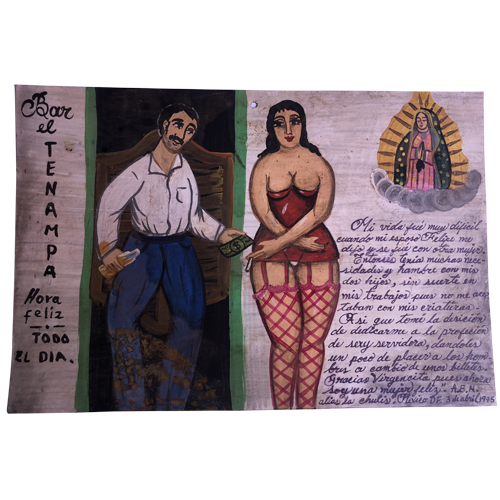 Bar
el
TENAMPA
Hora
feliz
TODO
EL DIA.
Mi vida fué muy dificil
cuando mi esposo Felipe me
dejo y se fué con otra mujer.
Entonses tenia muchas nece-
sidades y hambre con mis
dos hijos, sin suerte en
mis trabajos pues no me acep-
taban con mis criaturas.
Asi que tomé la desición
de dedicarme a la profeción
de sexy servidora, dandoles
un poco de placer a los hom-
bres a cambio de unos billetes.
Gracias Virgencita pues ahora
soy una mujer feliz. A.B.N.
alias la chulis. México DF. 3 de abril 1975